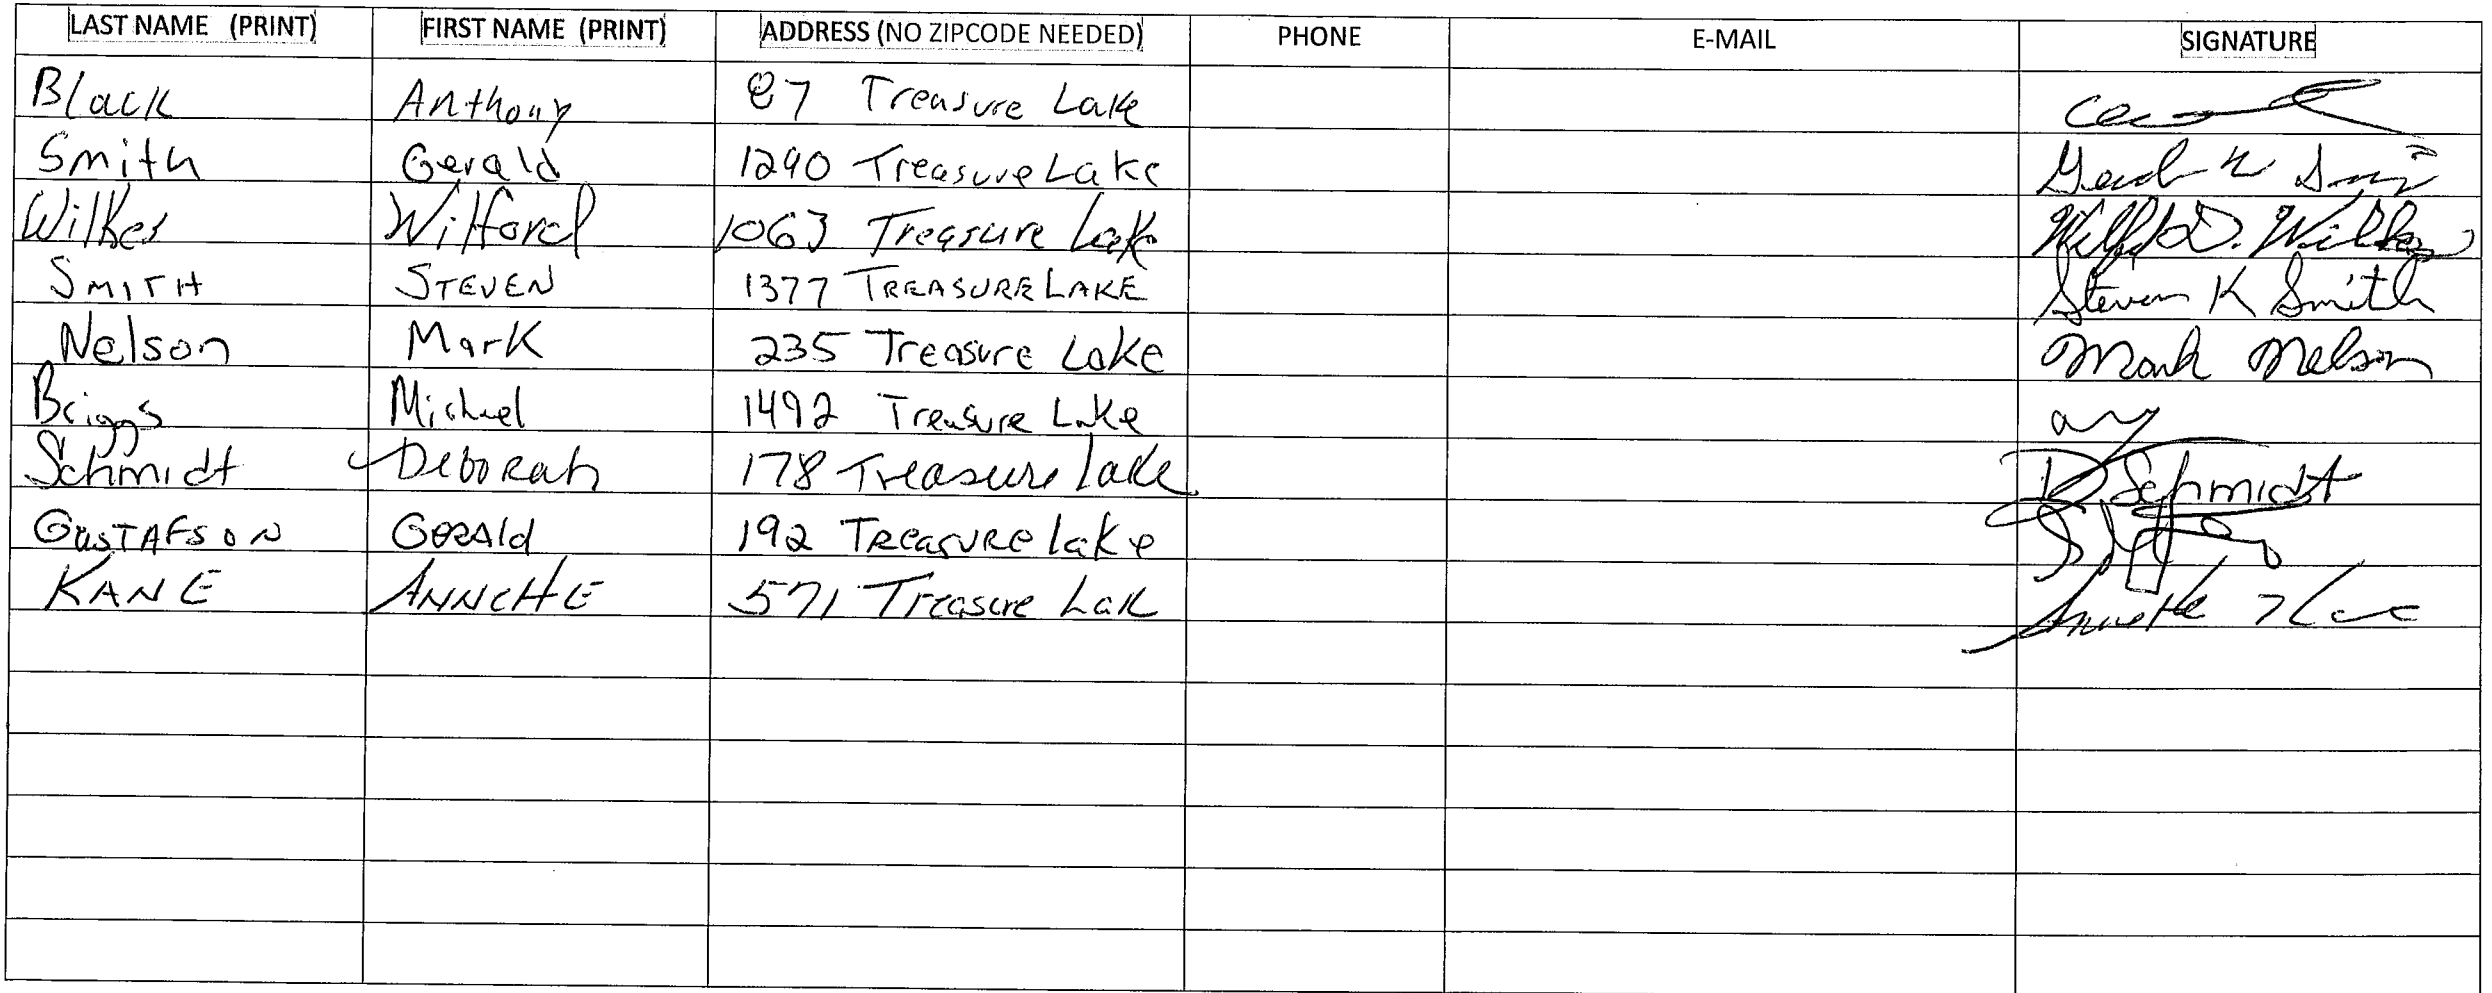 LAST NAME (PRINT) FIRST NAME (PRINT) ADDRESS (NO ZIPCODE NEEDED) PHONE E-MAIL SIGNATURE
Black Anthony 87 Treasure Lake
Smith Gerald 1290 Treasure Lake
Wilkes Wilford 1063 Treasure Lake Wilford D. Wilkes
SMITH STEVEN 1377 TREASURE LAKE Steven K Smith
Nelson Mark 235 Treasure Lake Mark Nelson
Briggs Michael 1492 Treasure Lake
Schmidt Deborah 178 Treasure Lake D Schmidt
GUSTAFSON GERAld 192 TREASURE lake
KANE ANNETTE 571 Treasure Lake Annette Kane